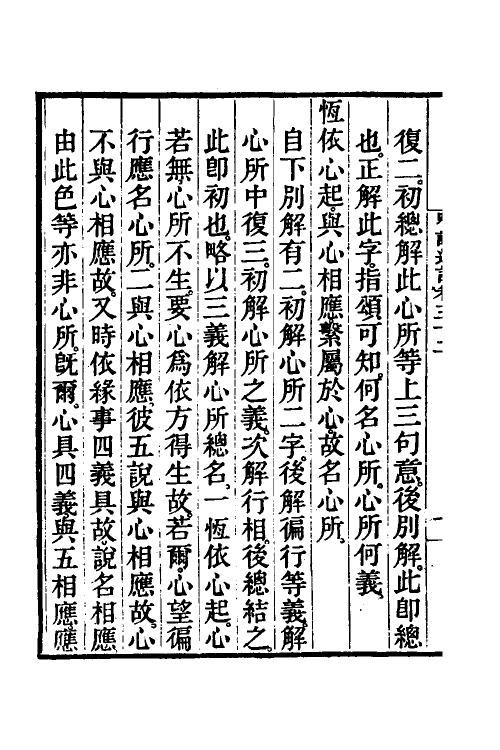 復二。初總解此心所等上三句意。後別解。此卽總
也。正解此字。指頌可知。何名心所。心所何義。
恆依心起與心相應繫屬於心。故名心所。
自下別解有二。初解心所二字。後解徧行等義。解
心所中復三。初解心所之義。次解行相。後總結之。
此卽初也。略以三義解心所總名。一恆依心起。心
若無心所不生。要心爲依方得生故。若爾。心望徧
行應名心所。二與心相應。彼五說與心相應故。心
不與心相應故。又時依緣事四義具故。說名相應
由此色等亦非心所。旣爾。心具四義與五相應應